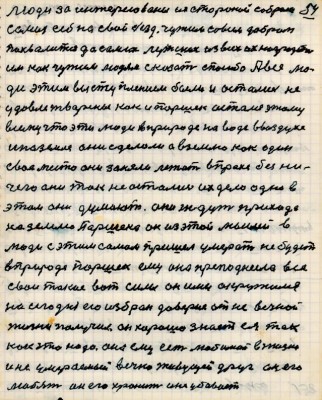 люди заинтересовани стороной собрали 84
самих себя на свой съезд, чужим совсем добром
похвалится да самих лутших из всех их наградить
им как чужим людям сказать спасибо А все лю-
ди этим выступлением были и остались не
удовлетворены как и Паршек остался этому
всему что эти люди в природе на воде в воздухе
и на земле они сделали а в землю как один
свое место они заняли лежат в прахе без ни-
чего они так и остались их дело одно в
этом они думают. они ждут прихода
на землю Паршека он из этой мыслей в
люди с этим самим пришел умерать не будет
в природе Паршек ему она преподнесла все
свои такие вот силы он ими окружился
на сегодня его избрал доверил от не вечной
жизни получил. он хорошо знает ея так
как это надо. она ему есть любимой в жизни
и не умираемый вечно живущей друг он его
любят он его хранит и не убивает